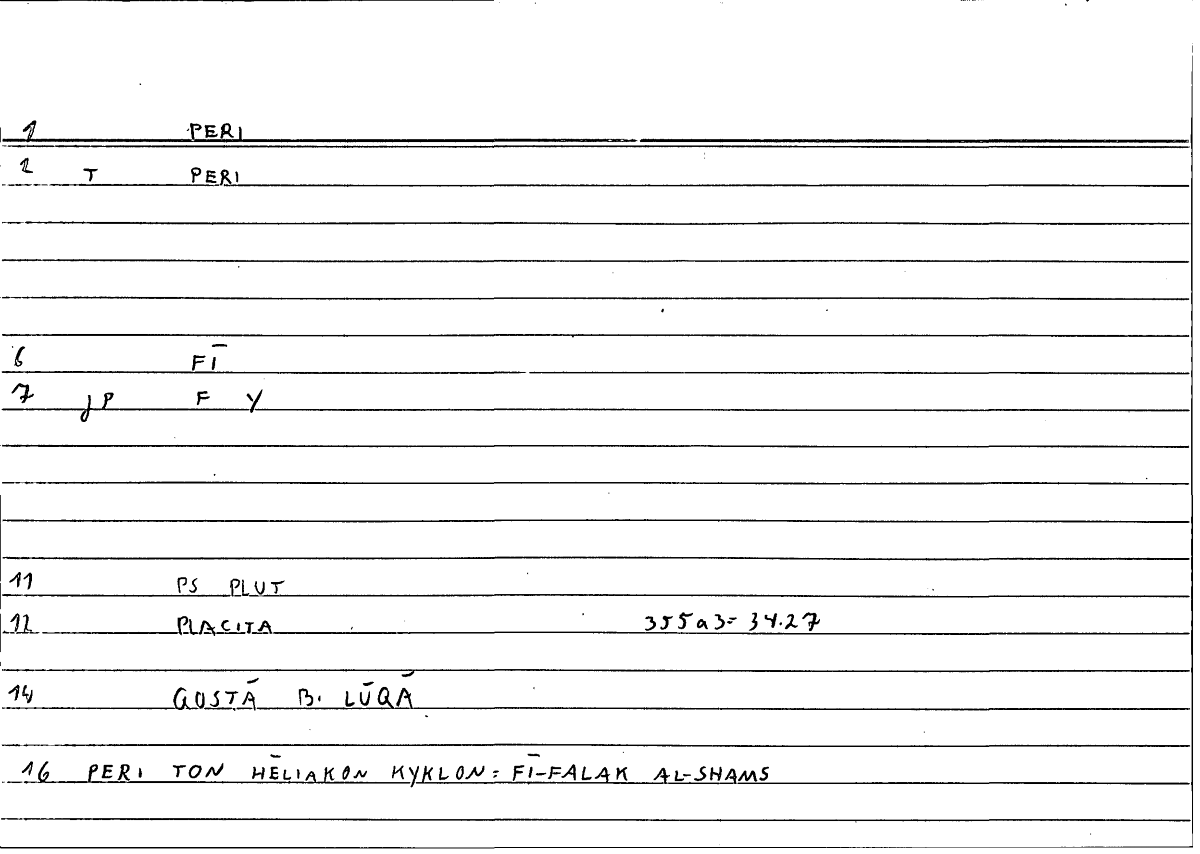 1 PERI
2 T PERI
6 FĪ
7 jP F Y
11 PS PLUT
12 PLACITA 355a3= 34.27
14 QUSTĀ B. LŪQĀ
16 PERI TON HĒLIAKON KYKLON = FĪ-FALAK AL-SHAMS